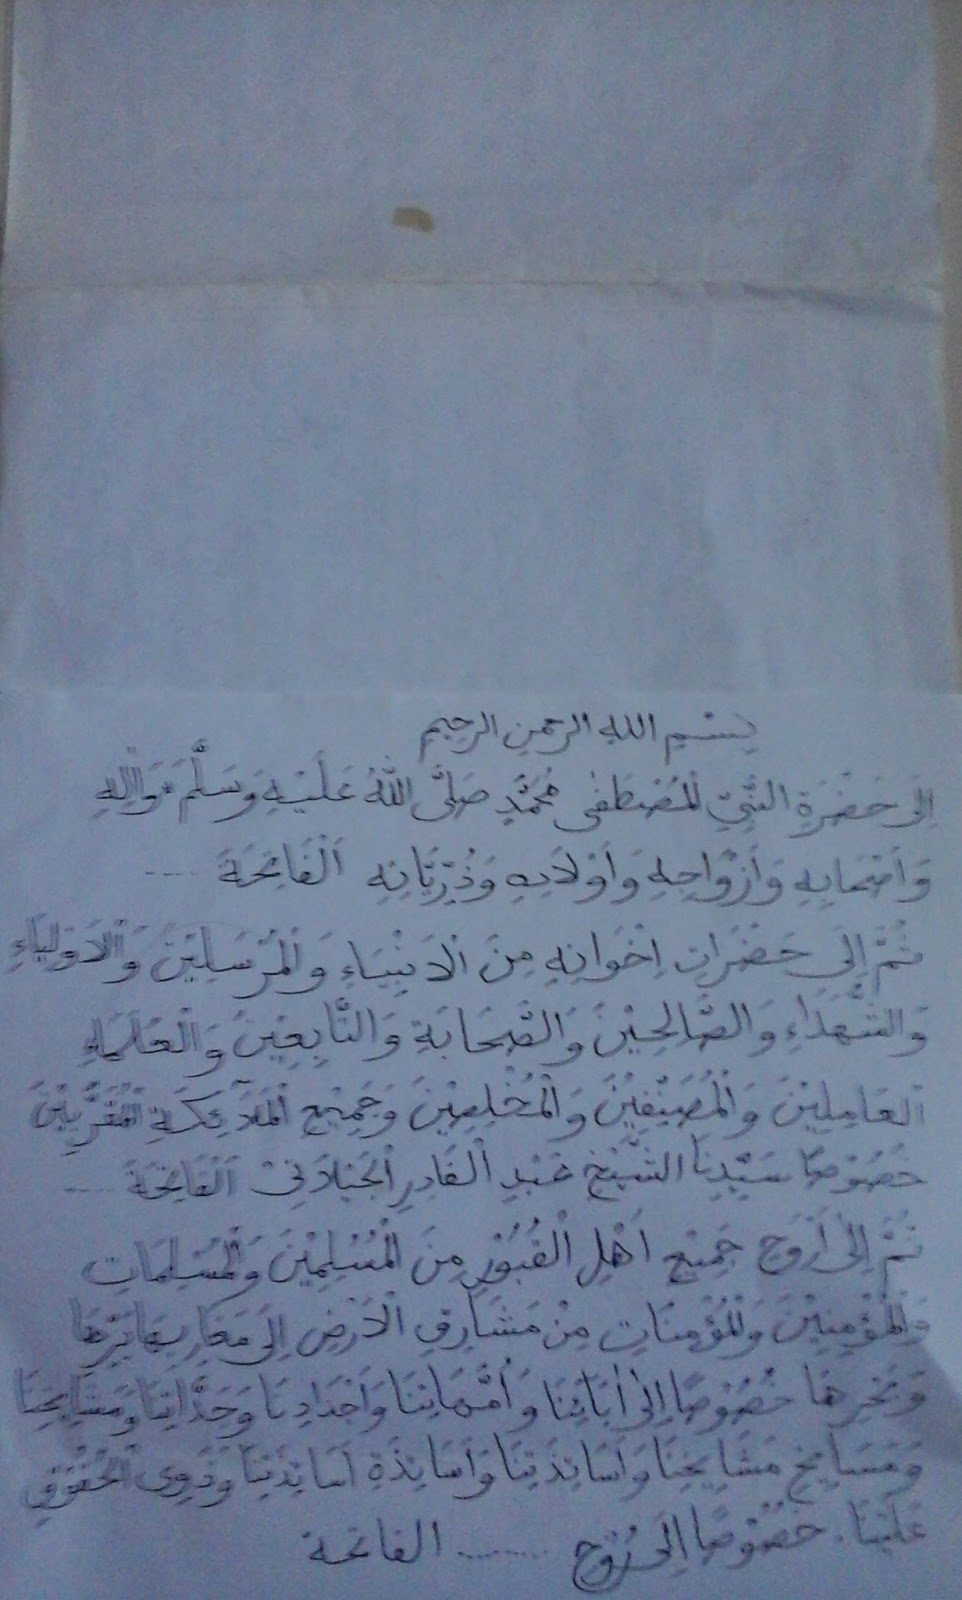 بِسْمِ اللهِ الرحمنِ الرحيم
اِلَى حَضْرَةِ النَّبِيِّ الْمُصْطَفٰى مُحَمَّدٍ صَلَّى اللّٰهُ عَلَيْهِ وَسَلَّمَ وَاٰلِهِ
وَاَصْحَابِهِ وَاَزْوَاجِهِ وَاَوْلَادِهِ وَذُرِّيَّاتِهِ اَلْفَاتِحَةَ ....
ثُمَّ اِلَى حَضَرَاتِ اِخْوَانِهِ مِنَ الْاَنْبِيَاءِ وَالْمُرْسَلِيْنَ وَالْاَوْلِيَاءِ
وَالشُّهَدَاءِ وَالصَّالِحِيْنَ وَالصَّحَابَةِ وَالتَّابِعِيْنَ وَالْعُلَمَاءِ
الْعَامِلِيْنَ وَالْمُصَنِّفِيْنَ وَالْمُخْلِصِيْنَ وَجَمِيْعِ الْمَلَآئِكَةِ الْمُقَرَّبِيْنَ
خُصُوْصًا سَيِّدِنَا الشَّيْخِ عَبْدِ الْقَادِرِ الْجَيْلَانِيْ اَلْفَاتِحَةَ ....
ثُمَّ اِلٰى اَرْوَحِ جَمِيْعِ اَهْلِ الْقُبُوْرِ مِنَ الْمُسْلِمِيْنَ وَالْمُسْلِمَاتِ
وَالْمُؤْمِنِيْنَ وَالْمُؤْمِنَاتِ مِنْ مَشَارِقِ الْاَرْضِ اِلَى مَغَارِبِهَا بَرِّهَا
وَبَحْرِهَا خُصُوْصًا اِلٰى اٰبَائِنَا وَاُمَّهَاتِنَا وَاَجْدَادِنَا وَجَدَّاتِنَا وَمَشَايِخِنَا
وَمَشَايِخِ مَشَايِخِنَا وَاَسَاتِذَتِنَا وَاَسَاتِذَةِ اَسَاتِذَتِنَا وَذَوِى الْحُقُوْقِ
عَلَيْنَا. خُصُوْصًا اِلَى رُوْحِ ........ الفاتحة